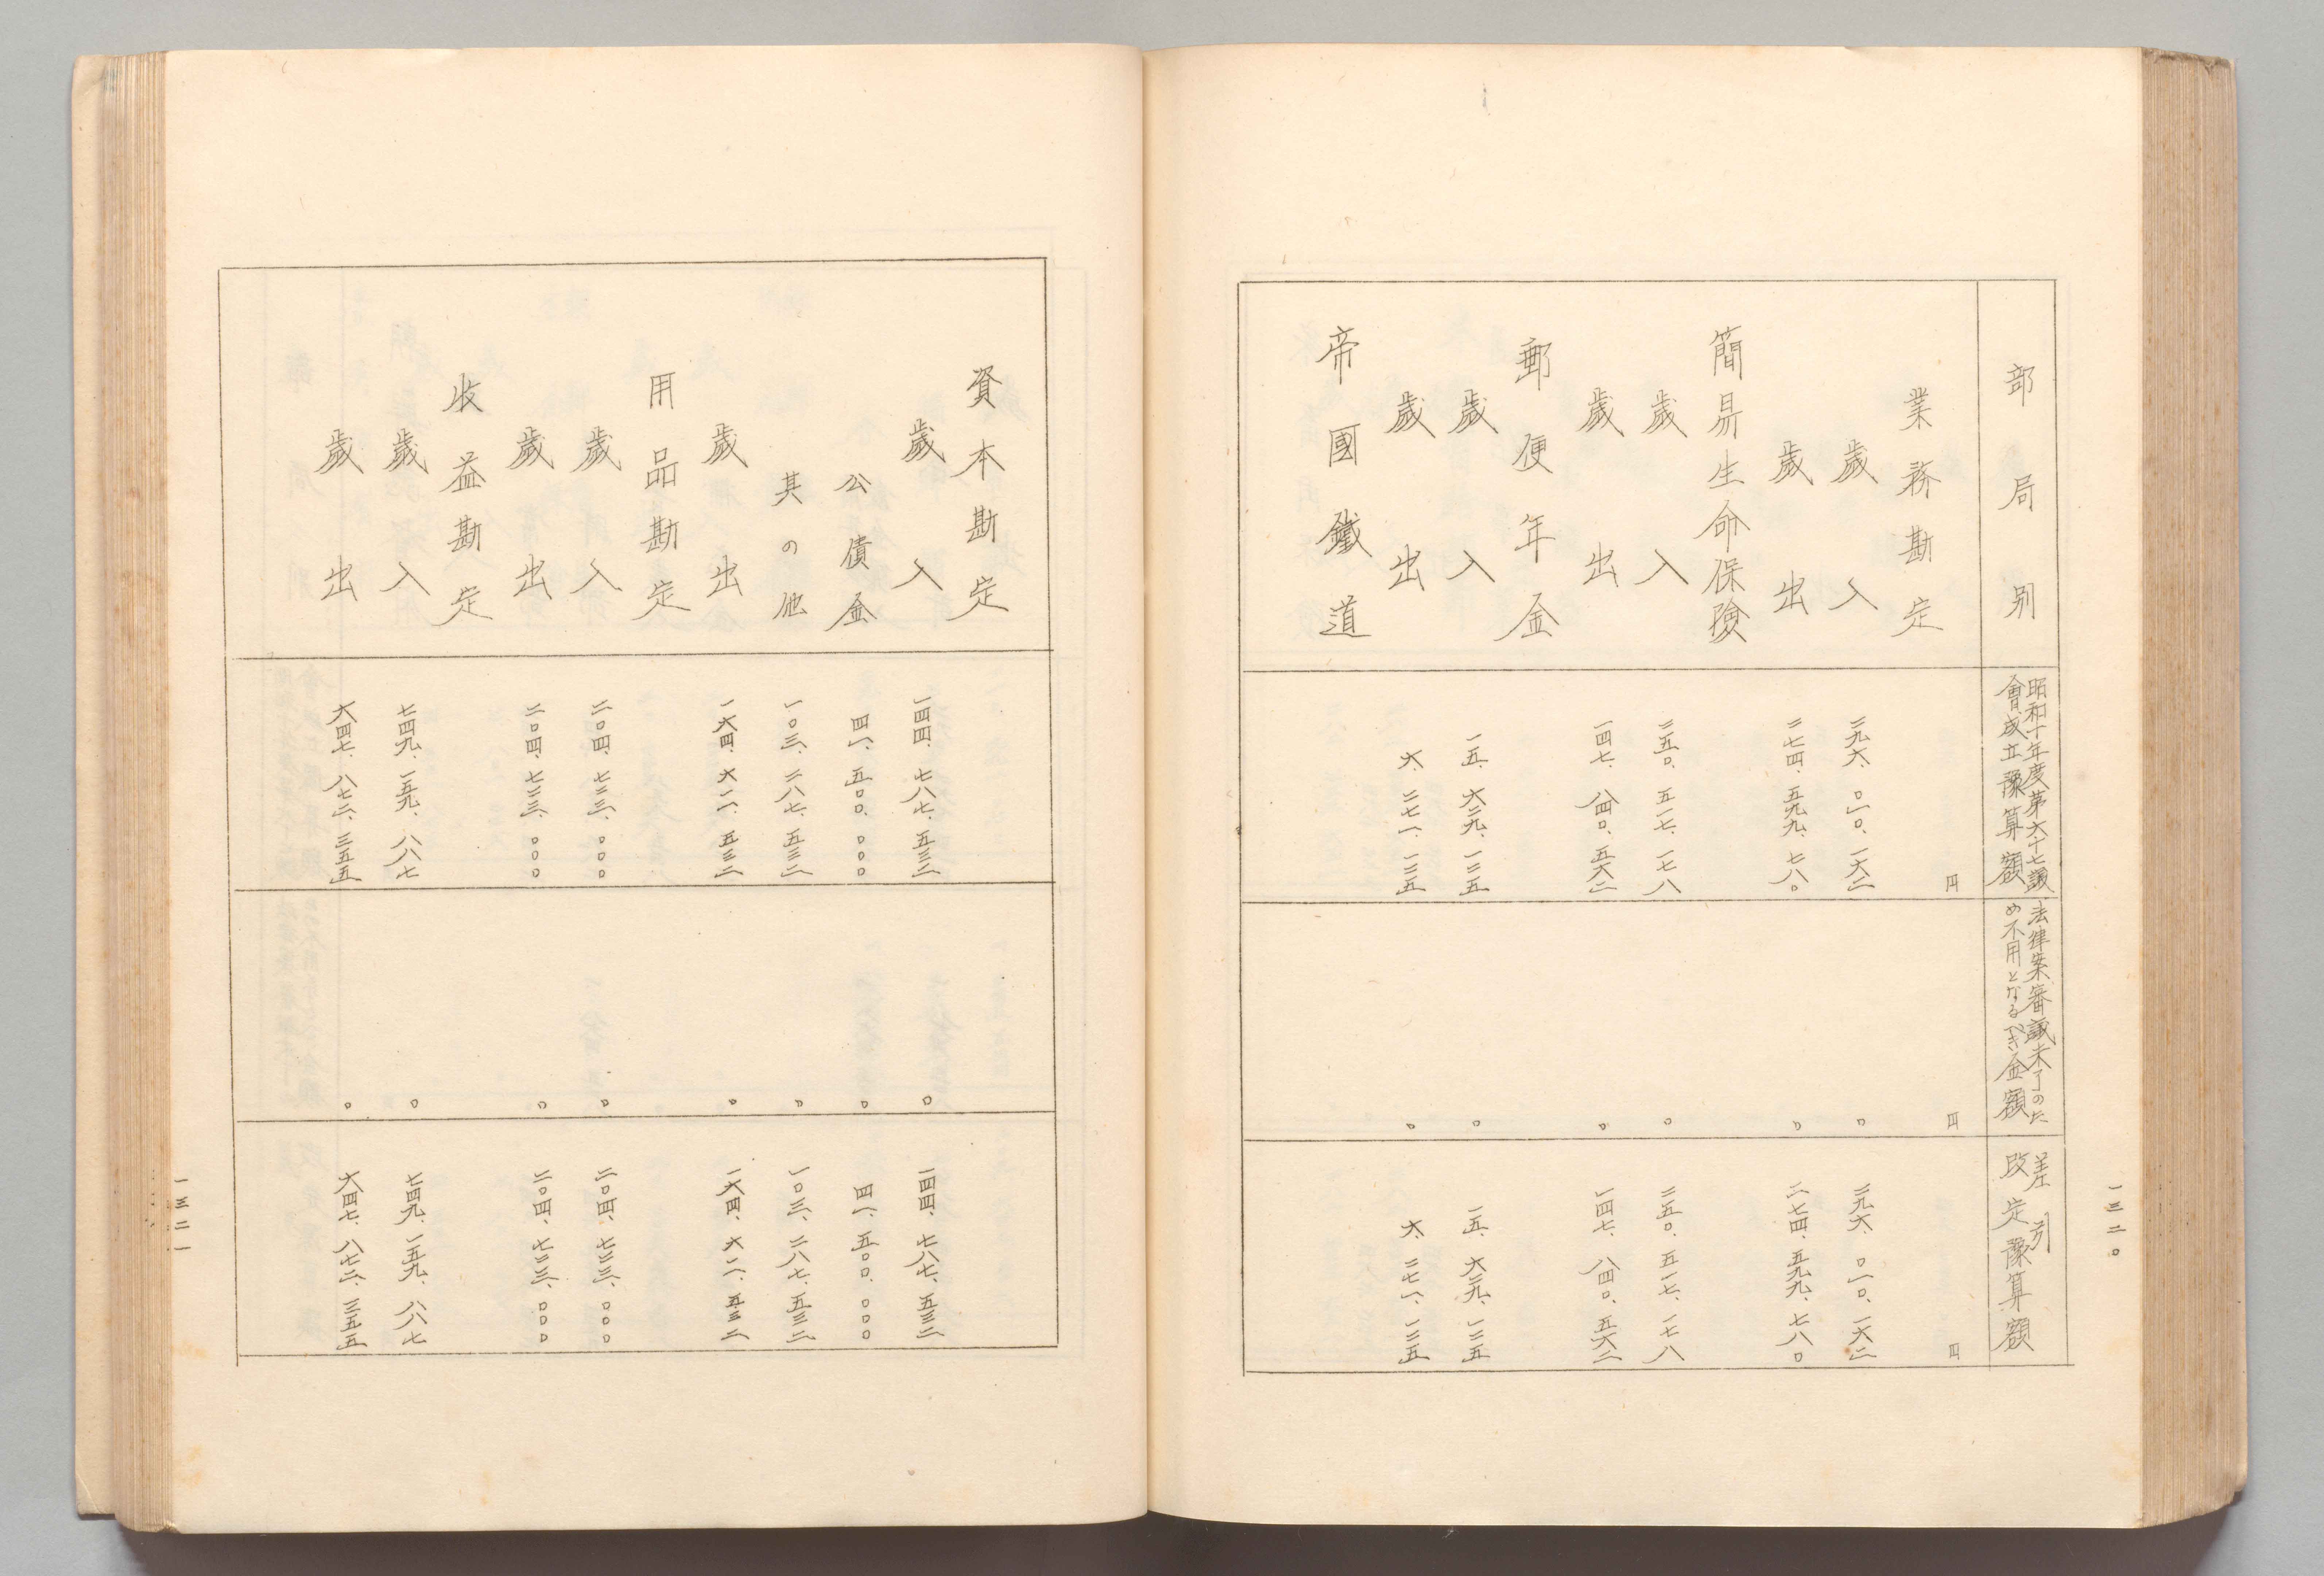 一三二〇
部局別
昭和十年度第六十七議
會成立豫算額
法律案審議未了のた
め不用となるべき金額
差引
改定豫算額
円
円
円
業務勘定
歳入
二九六、〇一〇、一六二
〇
二九六、〇一〇、一六二
歳出
二七四、五九九、七八〇
〇
二七四、五九九、七八〇
簡易生命保險
歳入
二五〇、五一七、一七八
〇
二五〇、五一七、一七八
歳出
一四七、八四〇、五六二
〇
一四七、八四〇、五六二
郵便年金
歳入
一五、六二九、一三五
〇
一五、六二九、一三五
歳出
六、二七一、一三五
〇
六、二七一、一三五
帝國鐵道
資本勘定
歳入
一四四、七八七、五三二
〇
一四四、七八七、五三二
公債金
四一、五〇〇、〇〇〇
〇
四一、五〇〇、〇〇〇
其の他
一〇三、二八七、五三二
〇
一〇三、二八七、五三二
歳出
一六四、六一一、五三二
〇
一六四、六一一、五三二
用品勘定
歳入
二〇四、七三三、〇〇〇
〇
二〇四、七三三、〇〇〇
歳出
二〇四、七三三、〇〇〇
〇
二〇四、七三三、〇〇〇
收益勘定
歳入
七四九、一五九、八八七
〇
七四九、一五九、八八七
歳出
六四七、八七二、三五五
〇
六四七、八七二、三五五
一三二一